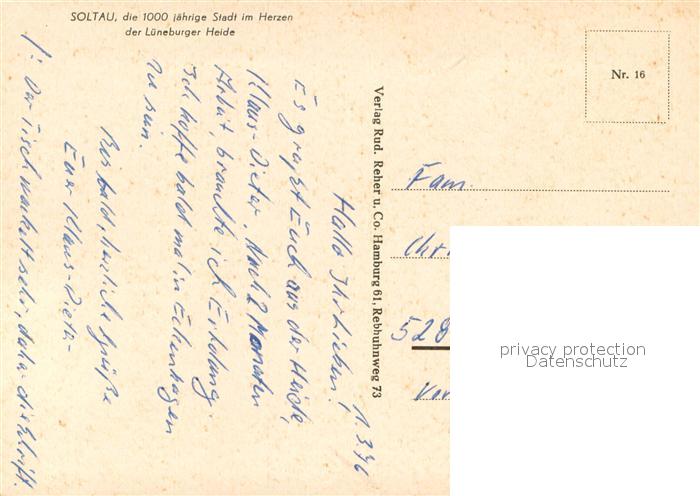 SOLTAU, die 1000 jährige Stadt im Herzen
der Lüneburger Heide
Nr. 16
Verlag Rud. Reher u. Co. Hamburg 61, Rebhuhnweg 73
1.3.76
Hallo Ihr Lieben!
Es grüßt Euch aus der Heide,
Klaus-Dieter. Nach 2 Monaten
Arbeit, brauchte ich Erholung.
Ich hoffe bald mal in Eckenhagen
zu sein.
Bis bald, herzliche Grüße
Euer Klaus-Dieter
!: Der Tisch wackelt sehr, daher die Schrift.
Fam.
Chr
528
privacy protection
Datenschutz